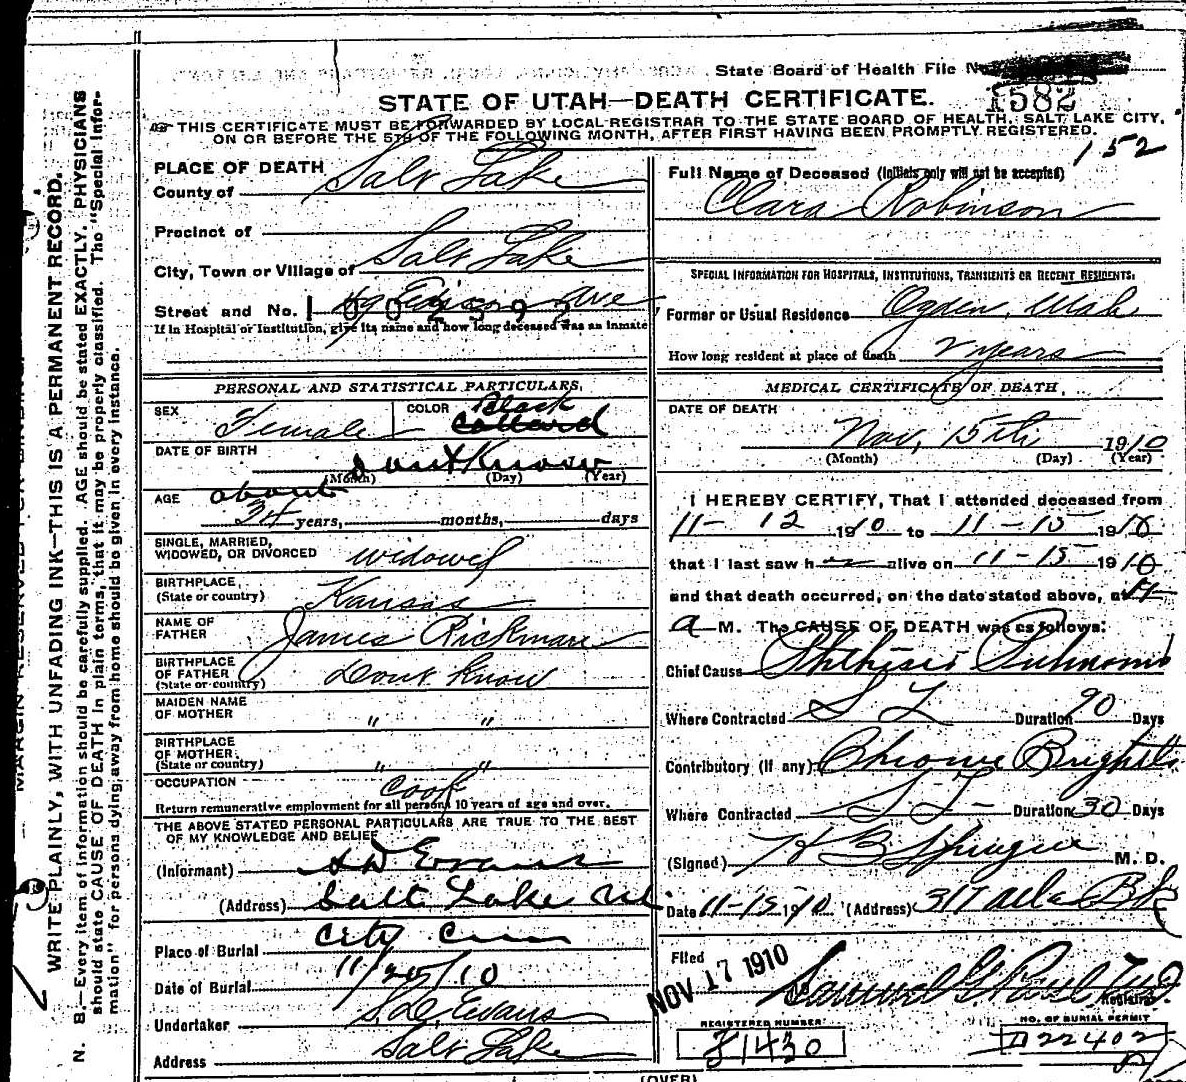 State Board of Health File No.
1582
STATE OF UTAH—DEATH CERTIFICATE.
THIS CERTIFICATE MUST BE FORWARDED BY LOCAL REGISTRAR TO THE STATE BOARD OF HEALTH, SALT LAKE CITY,
ON OR BEFORE THE 5TH OF THE FOLLOWING MONTH, AFTER FIRST HAVING BEEN PROMPTLY REGISTERED.
152
PLACE OF DEATH
County of Salt Lake
Precinct of
City, Town or Village of Salt Lake
Street and No. Edison Ave
If in Hospital or Institution, give its name and how long deceased was an inmate
PERSONAL AND STATISTICAL PARTICULARS.
SEX Female COLOR Black
DATE OF BIRTH
dont Know
(Month) (Day) (Year)
AGE about
34 years, months, days
SINGLE, MARRIED,
WIDOWED, OR DIVORCED widowed
BIRTHPLACE,
(State or country) Kansas
NAME OF
FATHER James Rickman
BIRTHPLACE
OF FATHER Dont know
(State or country)
MAIDEN NAME
OF MOTHER " "
BIRTHPLACE
OF MOTHER " "
(State or country)
OCCUPATION Cook
Return remunerative employment for all persons 10 years of age and over.
THE ABOVE STATED PERSONAL PARTICULARS ARE TRUE TO THE BEST
OF MY KNOWLEDGE AND BELIEF
(Informant) S D Evans
(Address) Salt Lake
Place of Burial City Cem
Date of Burial 11/20/10
Undertaker S.D. Evans
Address Salt Lake
Full Name of Deceased (Initials only will not be accepted)
Clara Robinson
SPECIAL INFORMATION FOR HOSPITALS, INSTITUTIONS, TRANSIENTS OR RECENT RESIDENTS:
Former or Usual Residence Ogden, Utah
How long resident at place of death 2 years
MEDICAL CERTIFICATE OF DEATH,
DATE OF DEATH
Nov, 15th 1910
(Month) (Day) (Year)
I HEREBY CERTIFY, That I attended deceased from
11-12 1910 to 11-15 1910
that I last saw her alive on 11-15 1910
and that death occurred, on the date stated above, at
a M. The CAUSE OF DEATH was as follows:
Chief Cause Phthisis Pulmonis
Where Contracted S L Duration 90 Days
Contributory (if any) Chronic Brights
Where Contracted S L Duration 30 Days
(Signed) H B Sprague M. D.
Date 11-15 1910 (Address) 317
Filed
NOV 17 1910
Samuel G Paul
Registrar
REGISTERED NUMBER
NO. OF BURIAL PERMIT
D22402
(OVER)
MARGIN RESERVED FOR BINDING.
WRITE PLAINLY, WITH UNFADING INK—THIS IS A PERMANENT RECORD.
N. B.—Every item of information should be carefully supplied. AGE should be stated EXACTLY. PHYSICIANS
should state CAUSE OF DEATH in plain terms, that it may be properly classified. The "Special Infor-
mation" for persons dying away from home should be given in every instance.